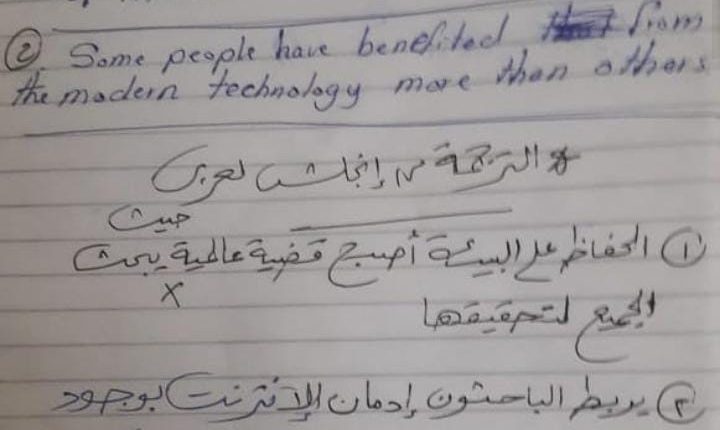 ② Some people have benefited from
the modern technology more than others
* الترجمة من إنجلش لعربى
حيث
① الحفاظ على البيئة أصبح قضية عالمية يبحث
x
الجميع لتحقيقها
② يربط الباحثون إدمان الإنترنت بوجود